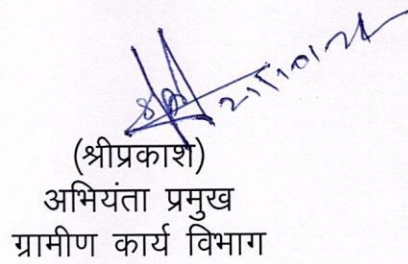 (श्रीप्रकाश)
अभियंता प्रमुख
ग्रामीण कार्य विभाग